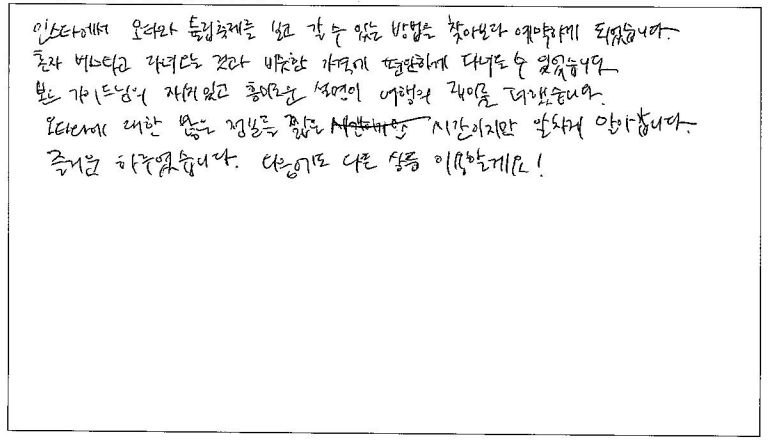 인스타에서 오타와 튤립축제를 보고 갈 수 있는 방법을 찾아보다 예약하게 되었습니다.
혼자 버스타고 다녀오는 것과 비슷한 가격에 편안하게 다녀올 수 있었습니다.
가이드님의 재치있고 흥미로운 설명이 여행의 재미를 더했습니다.
오타와에 대한 많은 정보를 짧은 시간이지만 알차게 알아갑니다.
즐거운 하루였습니다. 다음에도 다른 상품 이용할게요!